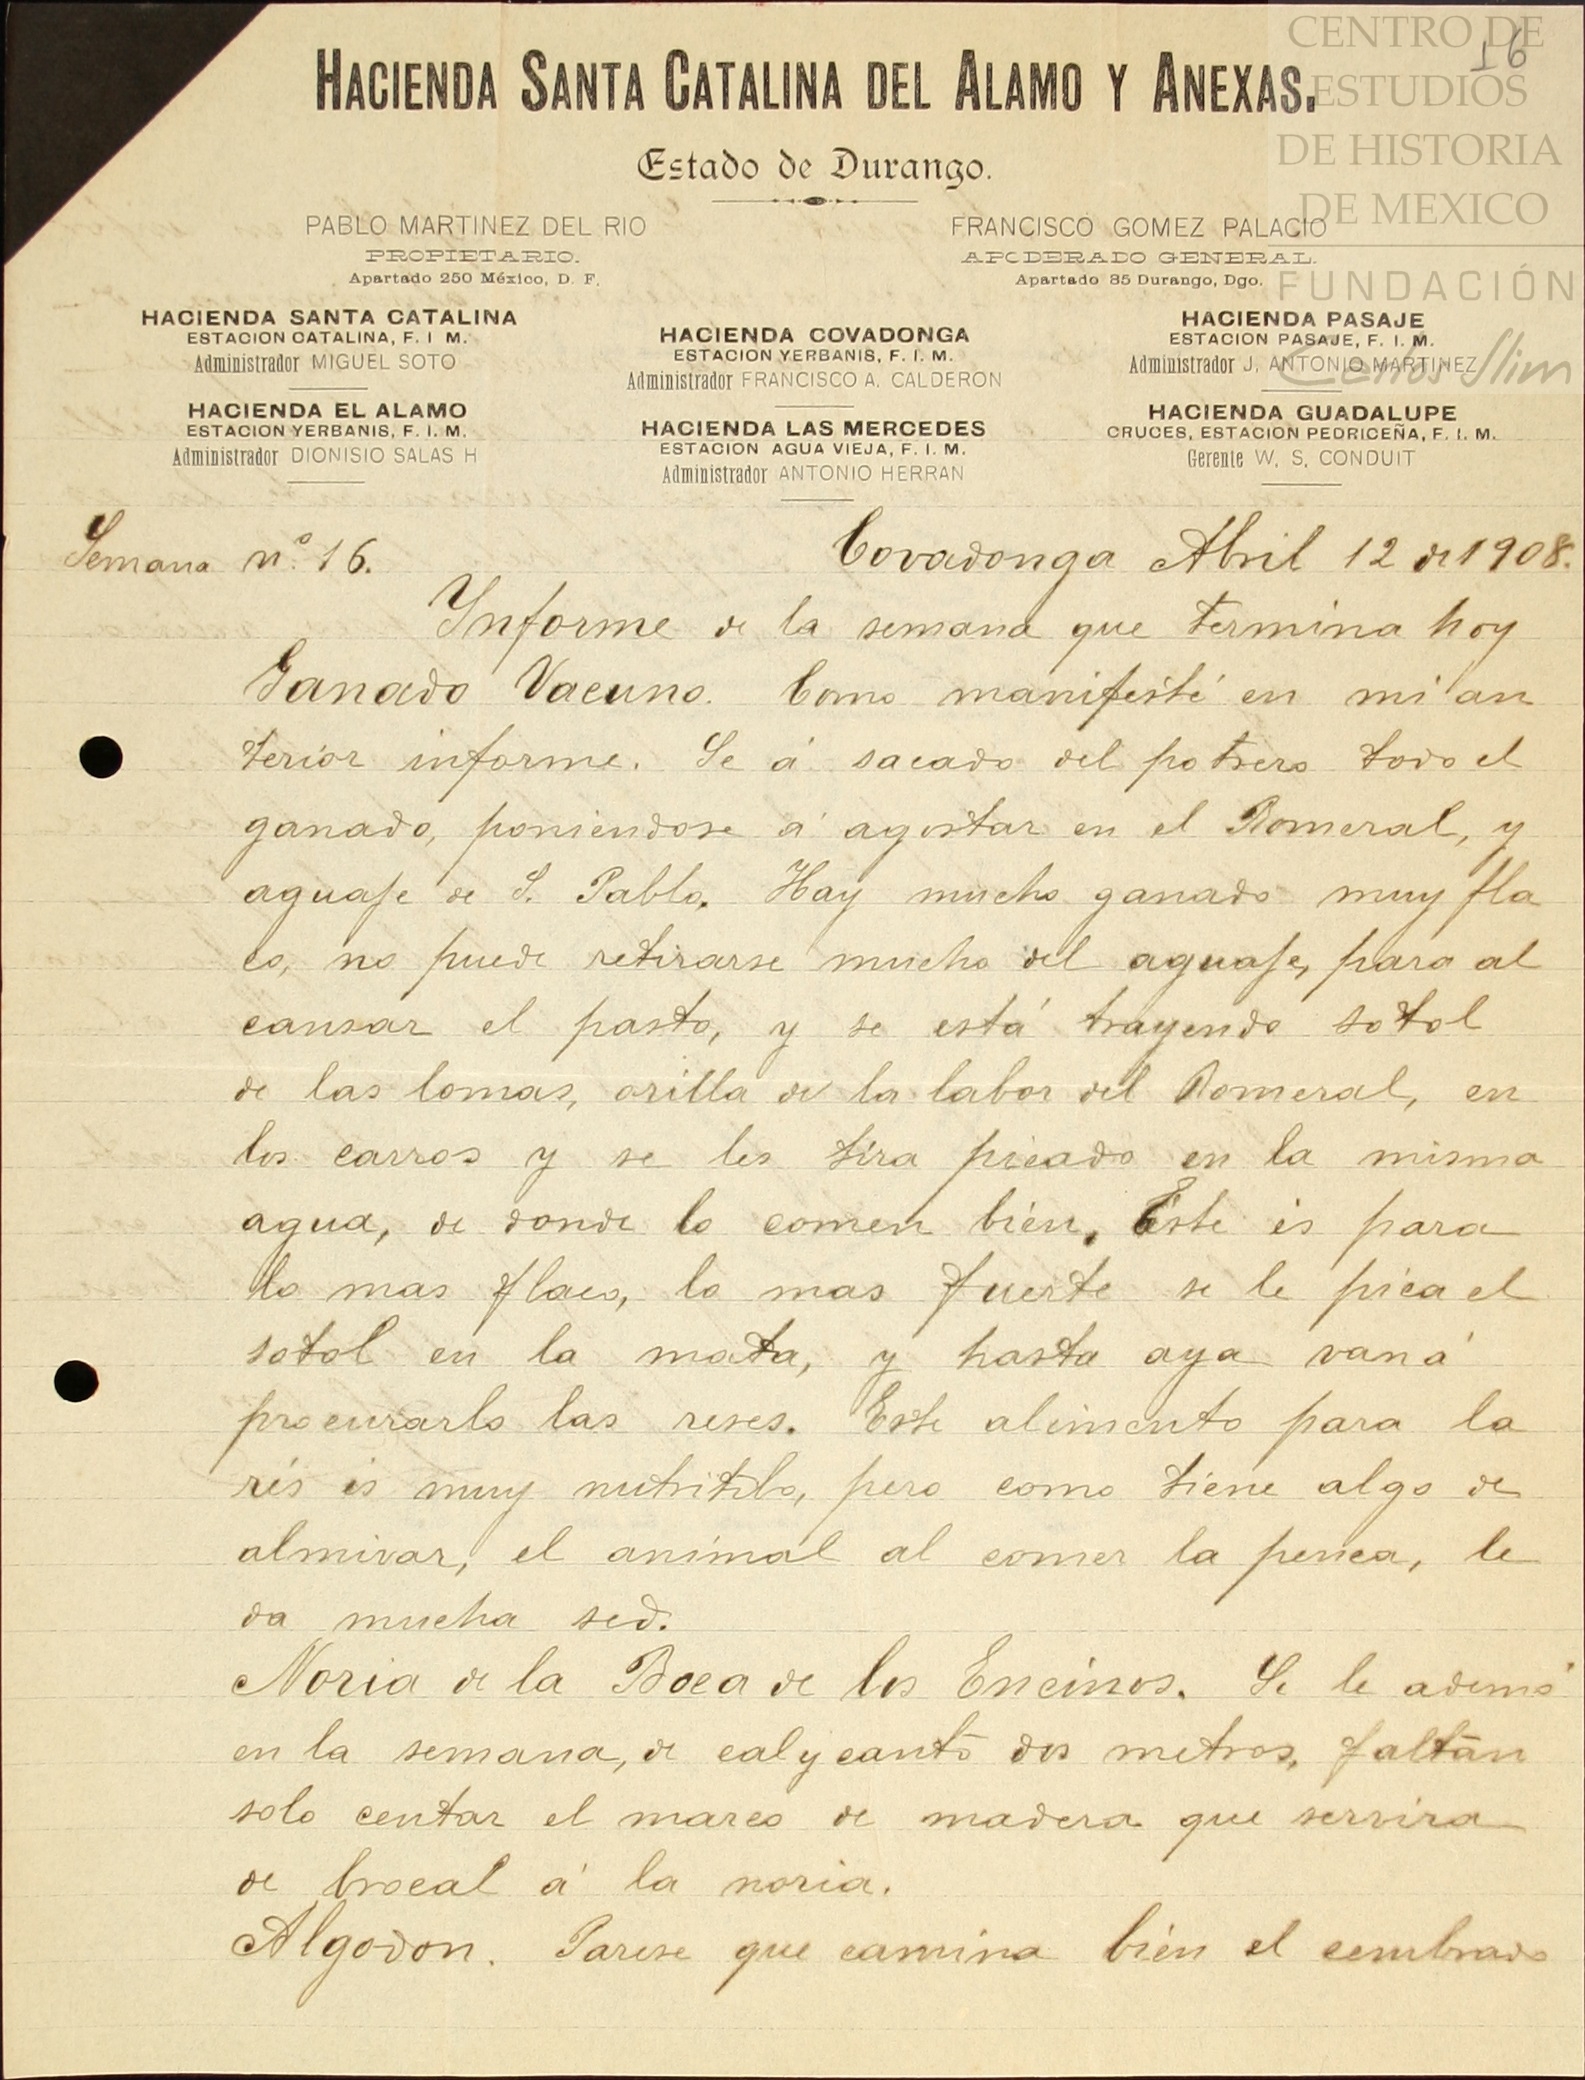 CENTRO DE
ESTUDIOS
DE HISTORIA
DE MEXICO
FUNDACIÓN
Carlos Slim
16
HACIENDA SANTA CATALINA DEL ALAMO Y ANEXAS.
Estado de Durango.
PABLO MARTINEZ DEL RIO
PROPIETARIO.
Apartado 250 México, D. F.
FRANCISCO GOMEZ PALACIO
APODERADO GENERAL.
Apartado 85 Durango, Dgo.
HACIENDA SANTA CATALINA
ESTACION CATALINA, F. I M.
Administrador MIGUEL SOTO
HACIENDA EL ALAMO
ESTACION YERBANIS, F. I. M.
Administrador DIONISIO SALAS H
HACIENDA COVADONGA
ESTACION YERBANIS, F. I. M.
Administrador FRANCISCO A. CALDERON
HACIENDA LAS MERCEDES
ESTACION AGUA VIEJA, F. I. M.
Administrador ANTONIO HERRAN
HACIENDA PASAJE
ESTACION PASAJE, F. I. M.
Administrador J. ANTONIO MARTINEZ
HACIENDA GUADALUPE
CRUCES, ESTACION PEDRICEÑA, F. I. M.
Gerente W. S. CONDUIT
Semana nº. 16. Covadonga Abril 12 de 1908.
Informe de la semana que termina hoy
Ganado Vacuno. Como manifesté en mi an
terior informe. Se á sacado del potrero todo el
ganado, poniendose á agostar en el Romeral, y
aguaje de S. Pablo. Hay mucho ganado muy fla
co, no puede retirarse mucho del aguaje, para al
cansar el pasto, y se está trayendo sotol
de las lomas, orilla de la labor del Romeral, en
los carros y se les tira picado en la misma
agua, de donde lo comen bien. Éste es para
lo mas flaco, lo mas fuerte se le pica el
sotol en la mata, y hasta aya van á
procurarlo las reses. Este alimento para la
rés es muy nutritibo, pero como tiene algo de
almivar, el animal al comer la penca, le
da mucha sed.
Noria de la Boca de los Encinos. Se le ademó
en la semana, de cal y canto dos metros, faltan
solo centar el marco de madera que servira
de brocal á la noria.
Algodon. Parese que camina bien el cembrado